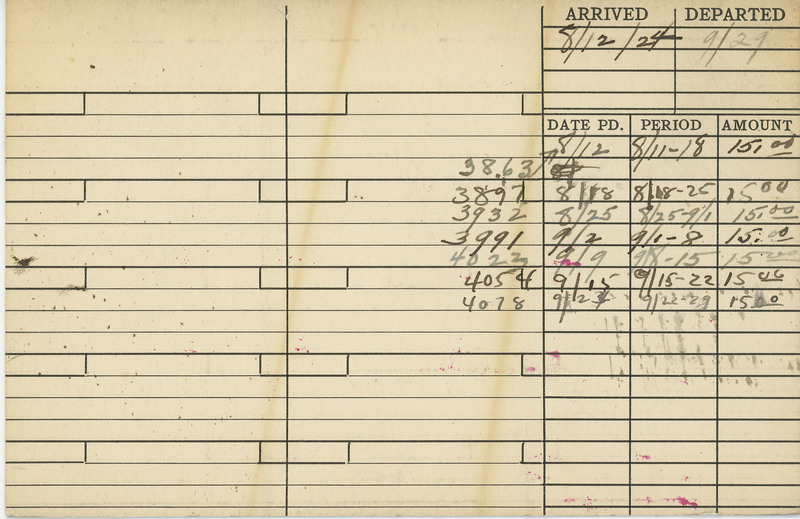 ARRIVED DEPARTED
8/12/24 9/29
DATE PD. PERIOD AMOUNT
8/12 8/11-18 15.00
38.63
3897 8/18 8/18-25 15.00
3932 8/25 8/25-9/1 15.00
3991 9/2 9/1-8 15.00
4023 9/9 9/8-15 15.00
4054 9/15 9/15-22 15.00
4078 9/23 9/22-29 15.00